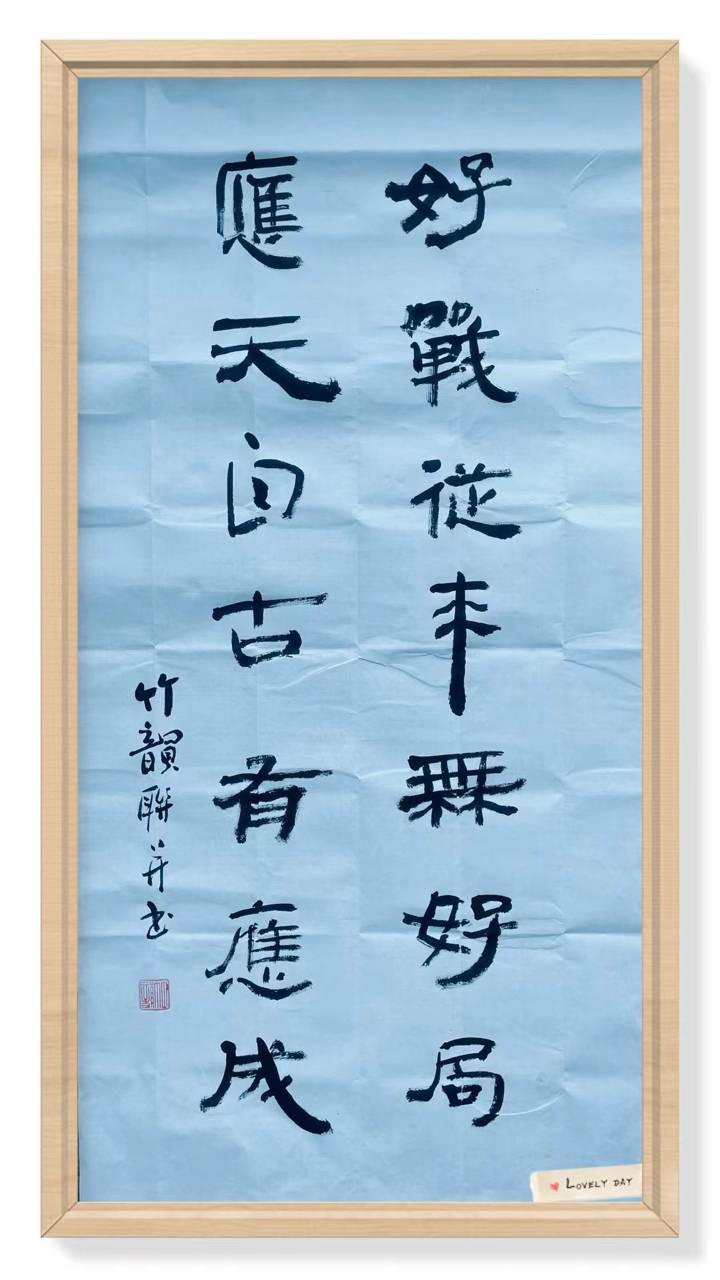 好戰從来無好局
應天自古有應成
竹韻聯并书
LOVELY DAY